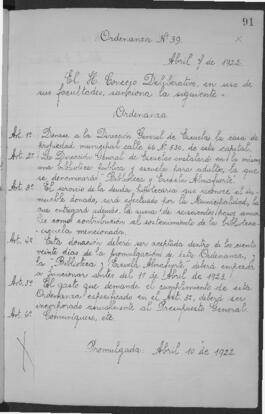 91
Ordenanza Nº 39.
Abril 7 de 1922.
El H. Concejo Deliberativo, en uso de
sus facultades, sanciona la siguiente.-
Ordenanza
Art. 1º. Dónase a la Dirección General de Escuelas la casa de
propiedad municipal calle 66 Nº 530, de esta capital.
Art. 2º. La Dirección General de Escuelas instalará en la misma
una biblioteca pública y escuela para adultos, la que
se denominará "Biblioteca y Escuela Almafuerte".
Art. 3º. El servicio de la deuda hipotecaria que reconoce el in-
mueble donado, será efectuado por la Municipalidad, la
que entregará además la suma de seiscientos pesos anua-
les como contribución al sostenimiento de la Biblioteca-
escuela mencionada.
Art. 4º. Esta donación deberá ser aceptada dentro de los ciento
veinte días de la promulgación de esta Ordenanza, y
la "Biblioteca y Escuela Almafuerte" deberá empezar
a funcionar antes del 1º de Abril de 1923.
Art. 5º. El gasto que demande el cumplimiento de esta
Ordenanza especificado en el Art. 3º, deberá ser
incorporado anualmente al Presupuesto General.
Art. 6º. Comuníquese, etc.
Promulgada: Abril 10 de 1922